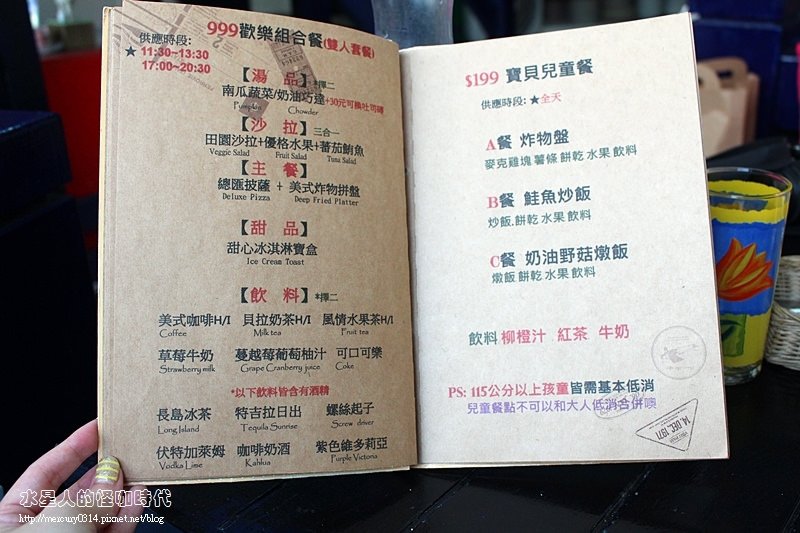 供應時段:
999歡樂組合餐(雙人套餐)
★ 11:30~13:30
17:00~20:30
【湯 品】*擇二
南瓜蔬菜/奶油巧達+30元可換吐司磚
Pumpkin Chowder
【沙 拉】三合一
田園沙拉+優格水果+蕃茄鮪魚
Veggie Salad Fruit Salad Tuna Salad
【主 餐】
總匯披薩 + 美式炸物拼盤
Deluxe Pizza Deep Fried Platter
【甜 品】
甜心冰淇淋寶盒
Ice Cream Toast
【飲 料】*擇二
美式咖啡H/I 貝拉奶茶H/I 風情水果茶H/I
Coffee Milk tea Fruit tea
草莓牛奶 蔓越莓葡萄柚汁 可口可樂
Strawberry milk Grape Cranberry juice Coke
*以下飲料皆含有酒精
長島冰茶 特吉拉日出 螺絲起子
Long Island Tequila Sunrise Screw driver
伏特加萊姆 咖啡奶酒 紫色維多莉亞
Vodka Lime Kahlua Purple Victoria
$199 寶貝兒童餐
供應時段: ★全天
A餐 炸物盤
麥克雞塊 薯條 餅乾 水果 飲料
B餐 鮭魚炒飯
炒飯.餅乾 水果 飲料
C餐 奶油野菇燉飯
燉飯 餅乾 水果 飲料
飲料 柳橙汁 紅茶 牛奶
PS: 115公分以上孩童 皆需基本低消
兒童餐點不可以和大人低消合併噢
14. DEC. 1971
水星人的怪咖時代
http://mercury0314.pixnet.net/blog